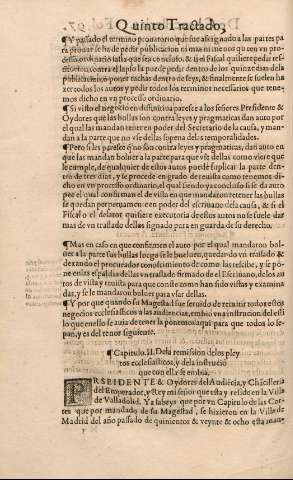 Quinto Tractado,
¶ Y passado el termino prouatorio que fue asignado a las partes pa
ra prouar se ha de pedir publicacion ni mas ni menos q̃ en vn pro-
cesso ordinario salta que sea concluso, & si el Fiscal quisiere pedir res-
titucion contra el lapso la puede pedir dentro de los quinze dias de la
publicacion y poner tachas dentro de seys, & finalmente se suelen ha
zer todos los autos y pedir todos los terminos necessarios que tene-
mos dicho en vn processo ordinario.
¶ Si visto el negocio en diffinitiua paresce a los señores Presidente &
Oydores que las bullas son contra leyes y pragmaticas dan auto por
el qual las mandan retener en poder del Secretario de la causa, y man-
dan a la parte que no vse dellas so pena de las temporalidades.
¶ Pero si les paresce q̃ no son contra leyes y pragmaticas, dan auto en
que las mandan boluer a la parte para que vse dellas como viere que
le cumple, de qualquier de estos autos puede suplicar la parte den-
tro de tres dias, y se procede en grado de reuista como tenemos di-
cho en vn processo ordinario, el qual siendo ya concluso si se da auto
por el qual confirman el de vista en que mandaron retener las bullas
se quedan perpetuamente en poder del escriuano de la causa, & si el
Fiscal o el delator quisiere executoria de estos autos no se suele dar
mas de vn traslado dellas signado para en guarda de su derecho.
¶ Mas en caso en que confirmen el auto por el qual mandaron bol-
uer a la parte sus bullas luego se le bueluen, quedando vn traslado &
dexando el procurador conoscimiento de como las rescibe, y se po-
ne en las espaldas della vn traslado firmado de el Escriuano, de los au
tos de vista y reuista para que conste como han sido vistas y examina
das, y se le mandaron boluer para vsar dellas.
¶ Y por que quando su Magestad fue seruido de remitir todos estos
negocios ecclesiasticos a las audiencias, embio vna instrucion del esti
lo que en ello se auia de tener la ponemos aqui para que todos lo se-
pan, y es del tenor siguiente.
¶ Capitulo. II. De la remision de los pley
tos ecclesiasticos, y de la instrucion
que con ella se embia.
PRESIDENTE & Oydores del Audiẽcia, y Chãcilleria
del Emperador, y Rey mi señor que esta y reside en la Villa
de Valladolid. Ya sabeys que por vn Capitulo de las Cor-
tes que por mandado de su Magestad, se hizieron en la Villa de
Madrid del año passado de quinientos & veynte & ocho esta man-